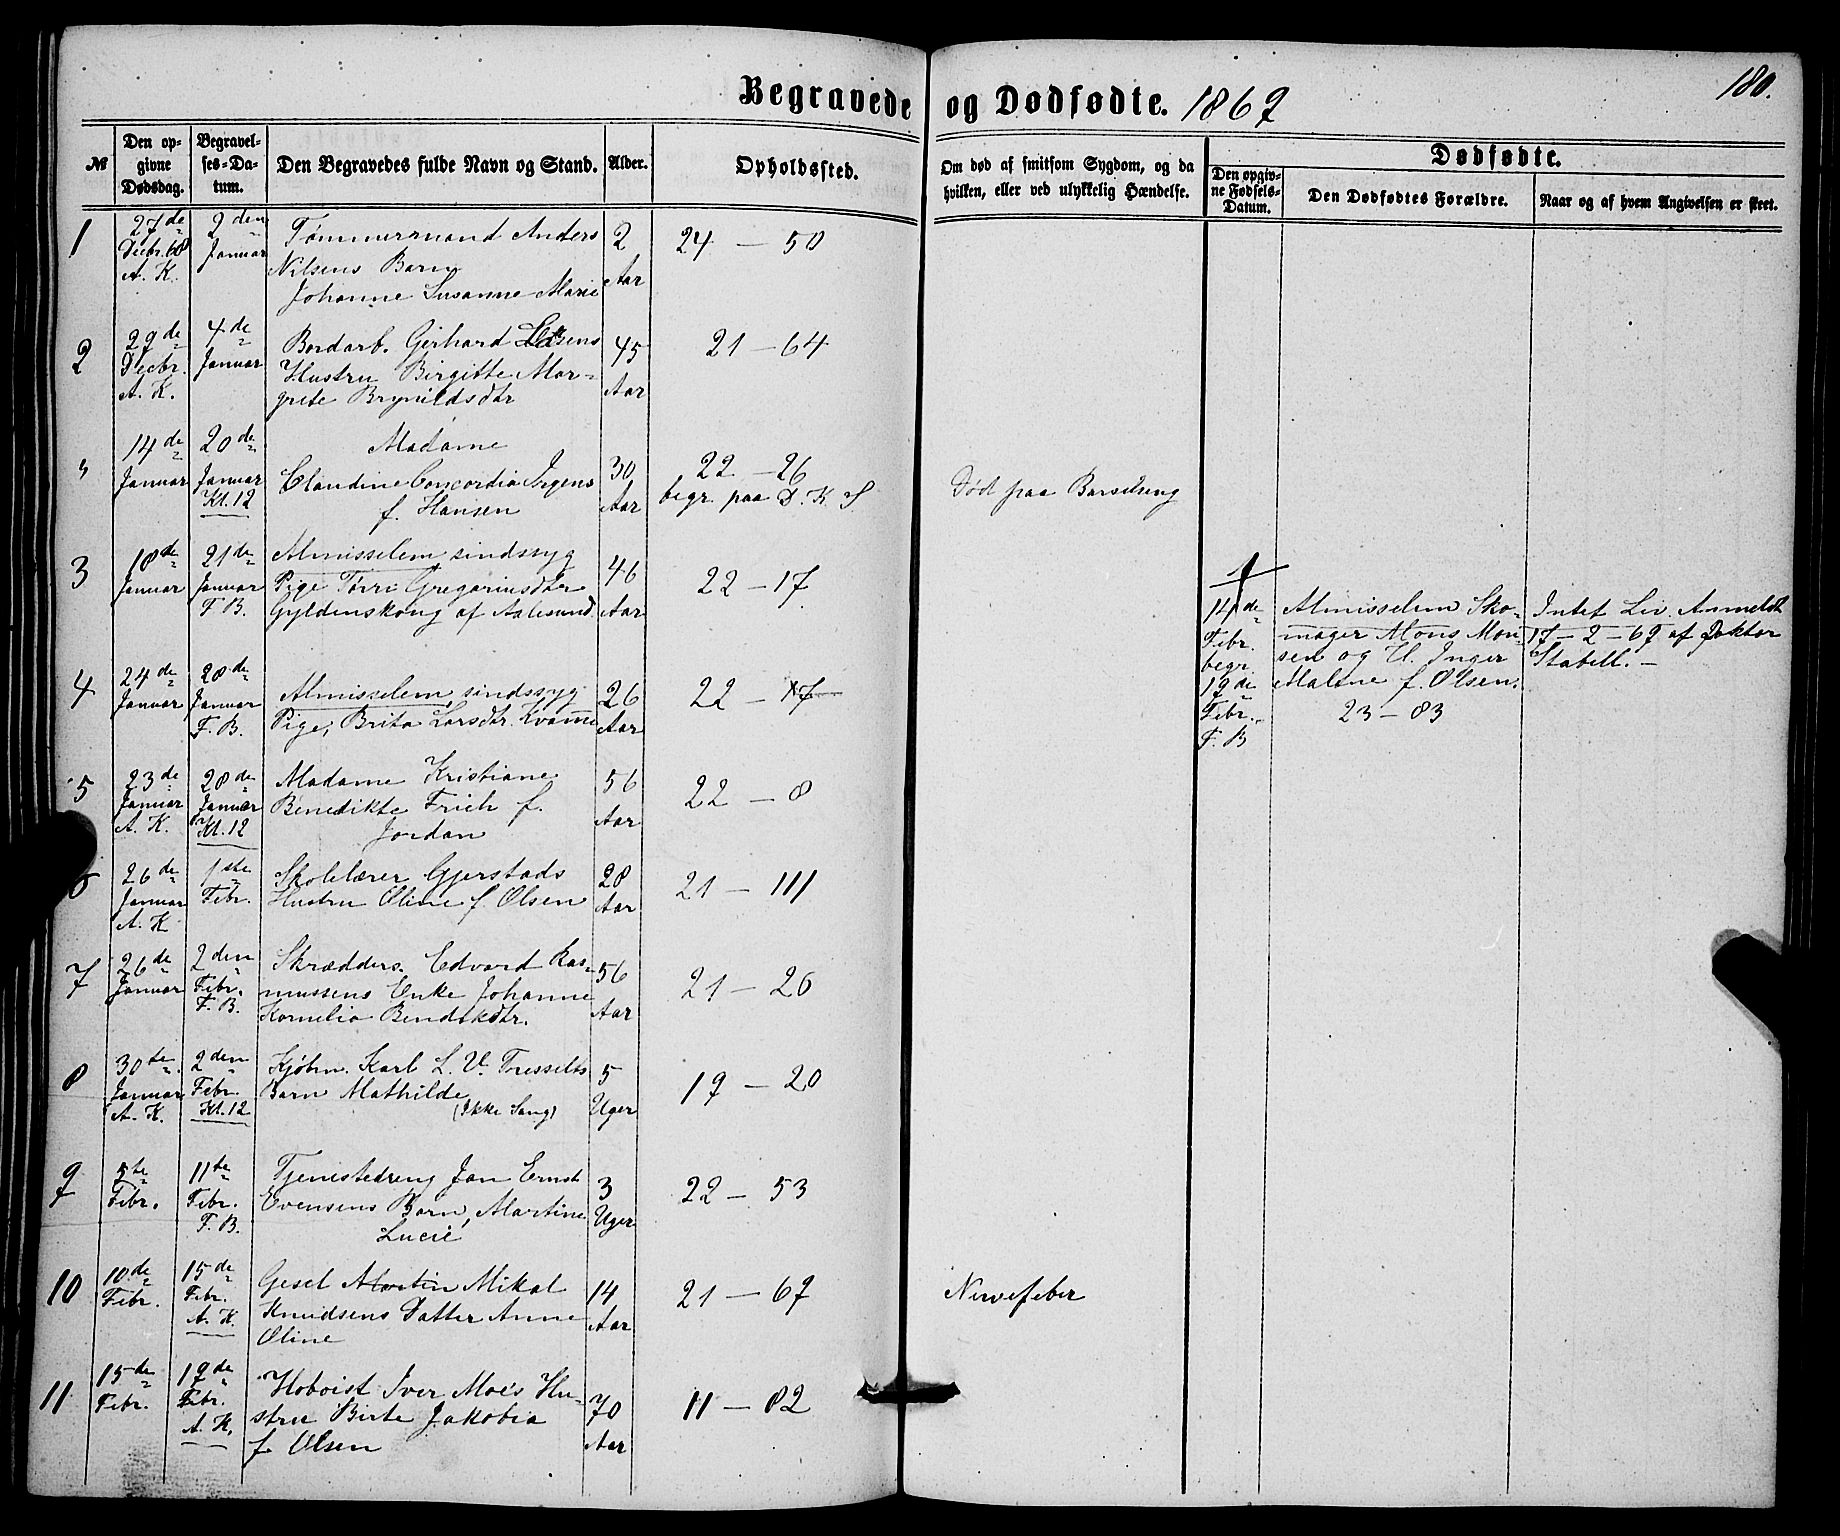 Begravede og Dødfødte. 1869
180.
№ | Den opgivne Dødsdag. | Begravelses-Datum. | Den Begravedes fulde Navn og Stand. | Alder. | Opholdssted. | Om død af smitsom Sygdom, og da hvilken, eller ved ulykkelig Hændelse. | Dødfødte.
Den opgivne Fødsels-Datum. | Den Dødfødtes Forældre. | Naar og af hvem Angivelsen er skeet.
1 27de 2den Tømmermand Anders 2 24 - 50
Decbr. 68 Januar Nilsens Barn Aar
A. K. Johanne Susanne Marie
2 29de 4de Bordarb. Gerhard 45 21 - 64
Decbr. Januar Hustru Birgitte Mar-
A. K. grete Brynildsdtr Aar
" 14de 20de Madame 30 22 - 26
Januar Januar Claudine Concordia Irgens Aar begr. paa D. K. Død paa Barselseng
Kl. 12 f. Hansen
3 18de 21de Almisselem sindssyg 46 22 - 17
Januar Januar Pige Torri Gregoriusdtr Aar
F. B. Gyldenskong af Aalesund.
4 24de 28de Almisselem, sindssyg 26 22 - 17
Januar Januar Pige, Brita Larsdtr. Kvamme Aar
F. B.
5 23de 28de Madame Kristiane 56 22 - 8
Januar Januar Benedikte Frich f. Aar
A. K. Kl. 12 Jordan
6 26de 1ste Skolelærer Gjerstads 28 21 - 111
Januar Febr. Hustru Oline f. Olsen Aar
A. K.
7 26de 2den Skrædders. Edvard Ras- 56 21 - 26
Januar Febr. mussens Enke Johanne Aar
F. B. Kornelia Bendiksdtr.
8 30te 2den Kjøbm. Karl L. V. Tresselts 5 19 - 20
Januar Febr. Barn Mathilde Uger
A. K. Kl. 12 (Ikke Sang)
9 5te 11te Tjenestedreng Jan Ernst 3 22 - 53
Febr. Febr. Evensens Barn, Martine Uger
F. B. Lucie
10 10de 15de Gesel Martin Mikal 14 21 - 69 Nervefeber
Febr. Febr. Knudsens Datter Anne Aar
A. K. Oline
11 15de 19de Hoboist Iver Moe's Hu- 70 11 - 82
Febr. Febr. stru Birte Jakobia Aar
A. K. f. Olsen
1
14de Almisselem Sko- Intet Liv. Anmeldt
Febr. mager Mons Mon- 17-2-69 af Doktor
begr. sen og H. Inger Stabell. -
19de Malene f. Olsen.
Febr. 23 - 83
F. B